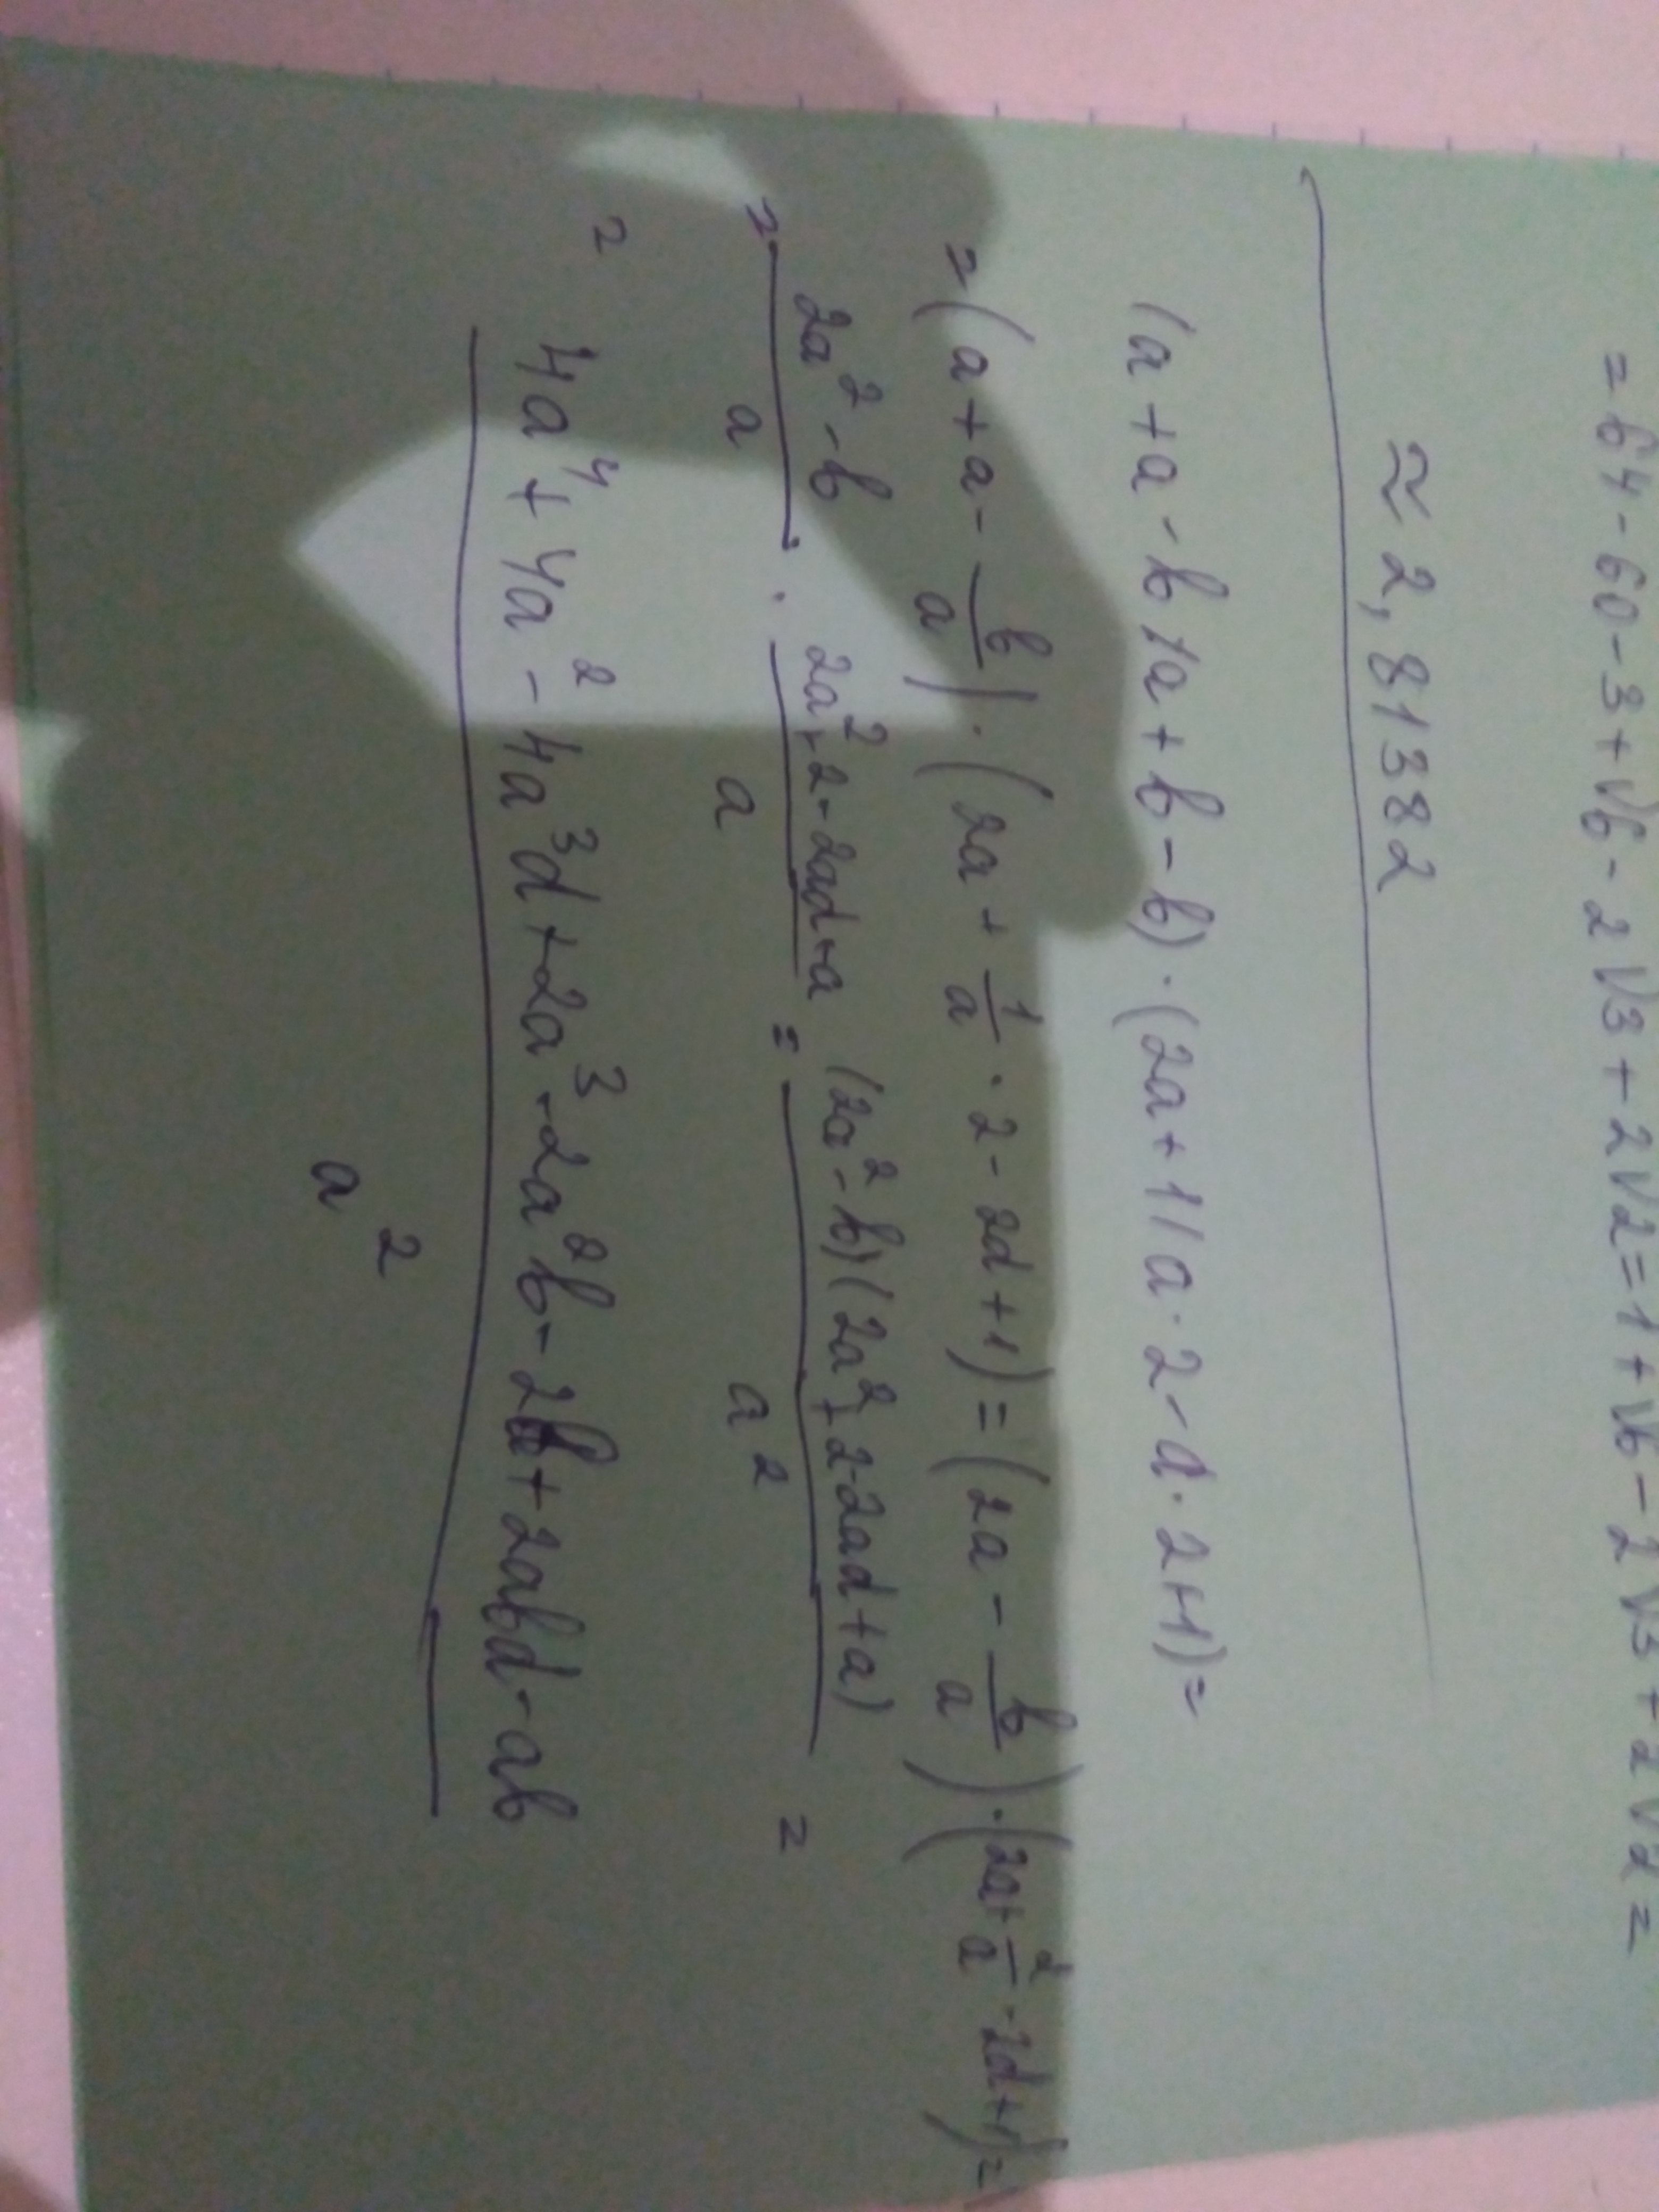 = 64 - 60 - 3 + √6 - 2√3 + 2√2 = 1 + √6 - 2√3 + 2√2 =
≈ 2,81382
(a + a - b/a + b - b) · (2a + 1/a · 2 - d · 2 + 1) =
= (a + a - b/a) · (2a + 1/a · 2 - 2d + 1) = (2a - b/a) · (2a + 2/a - 2d + 1) =
= (2a² - b)/a · (2a² + 2 - 2ad + a)/a = ((2a² - b)(2a² + 2 - 2ad + a))/a² =
= (4a⁴ + 4a² - 4a³d + 2a³ - 2a²b - 2b + 2abd - ab)/a²